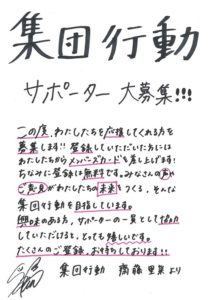 集団行動
サポーター 大募集!!!
この度、わたしたちを応援してくれる方を
募集します!! 登録していただいた方には
わたしたちからメンバーズカードを差し上げます!
ちなみに登録は無料です。みなさんの声や
ご意見がわたしたちの未来をつくる、そんな
集団行動を目指しています。
興味のある方、サポーターの一員として協力
していただけると、とっても嬉しいです。
たくさんのご登録、お待ちしております!!
集団行動 齋藤里菜より